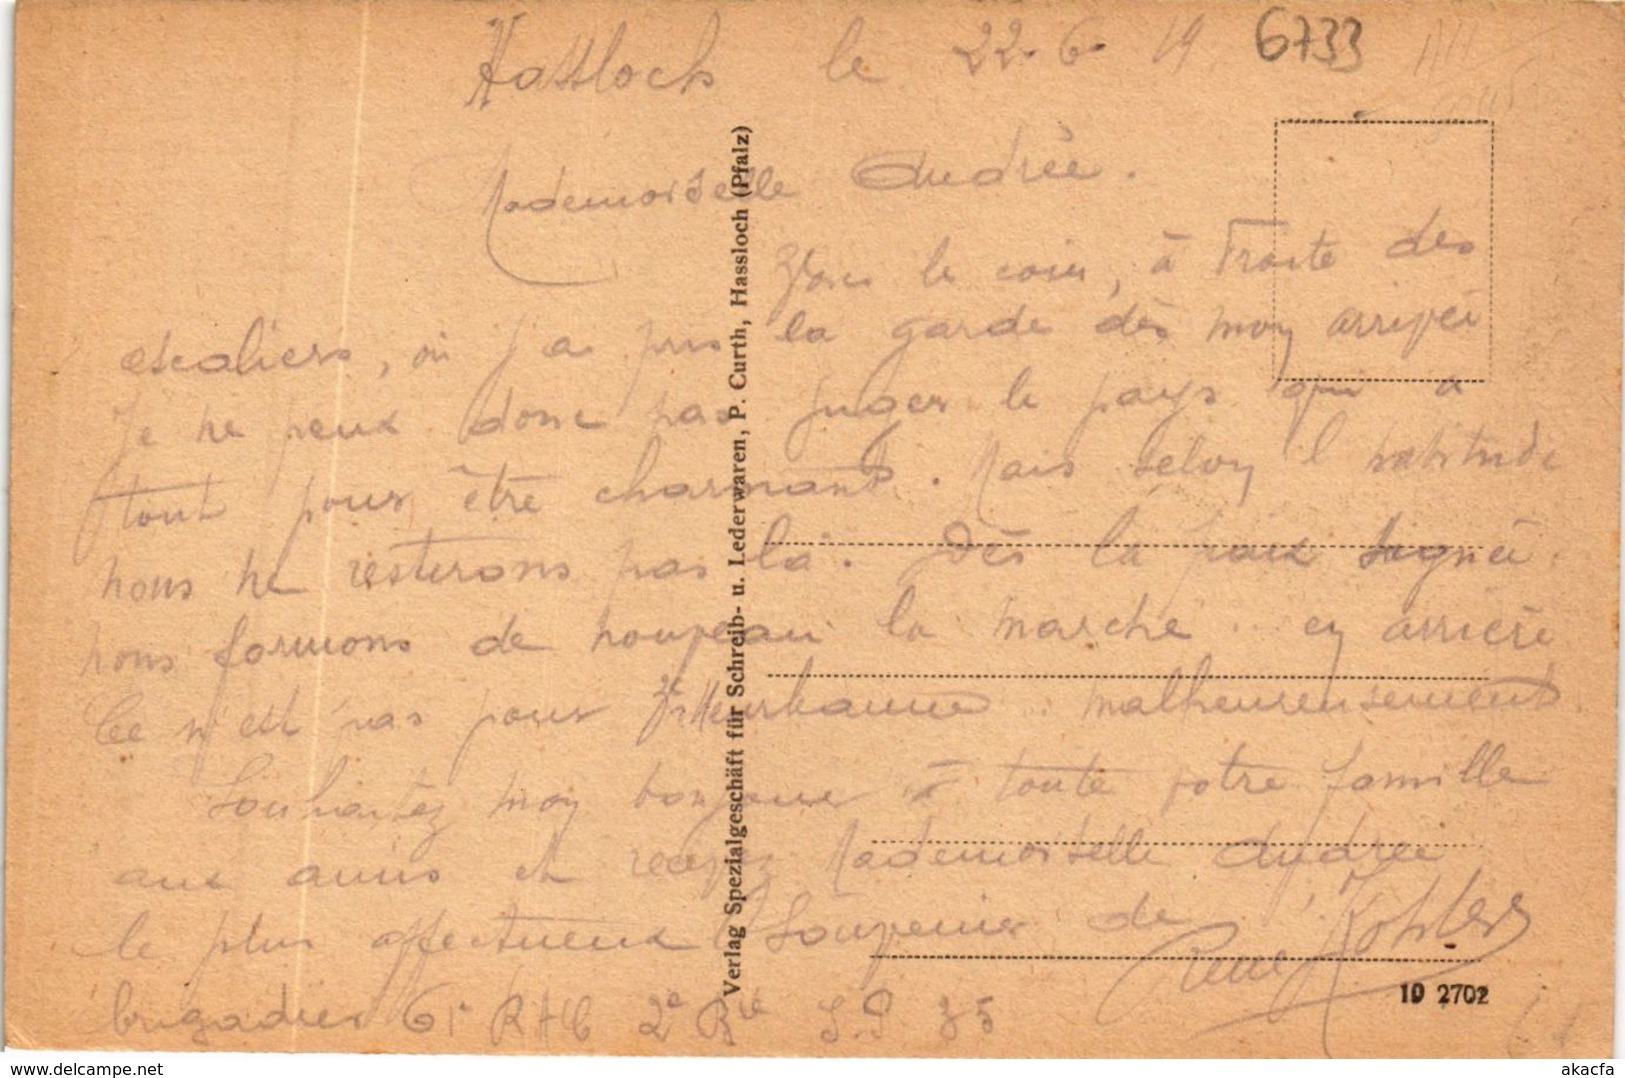 Hassloch le 22-6-19
6733
Mademoiselle Andrée.
Dans le coin, à droite des
escaliers, où j'ai pris la garde dès mon arrivée
Je ne peux donc pas juger le pays qui a
tout pour être charmant. Mais selon l'habitude
nous ne resterons pas là. Dès la paix signée
nous formons de nouveau la marche en arrière
Ce n'est pas pour malheureusement.
Souhaitez mon bonjour à toute votre famille
aux amis et recevez Mademoiselle Andrée
le plus affectueux souvenir de
René Kohler
brigadier 61e RAC 2e Bie S.P 35
Verlag Spezialgeschäft für Schreib- u. Lederwaren, P. Curth, Hassloch (Pfalz)
19 2702
akacfa
www.delcampe.net